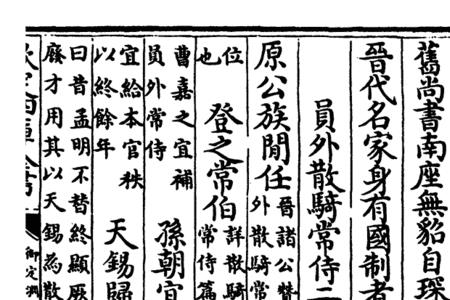 舊尚書南座無貂自琛
晉代名家身有國制者
員外散騎常侍二
原公族閒任
晉諸公
外散騎常
位
也
登之常伯
詳散騎
常侍篇
曹嘉之宜補
員外常侍
孫朝宜
宜給本官秩
以終餘年
天錫歸
曰昔孟明不替終顯厥
廢才用其以天錫為散
御定淵